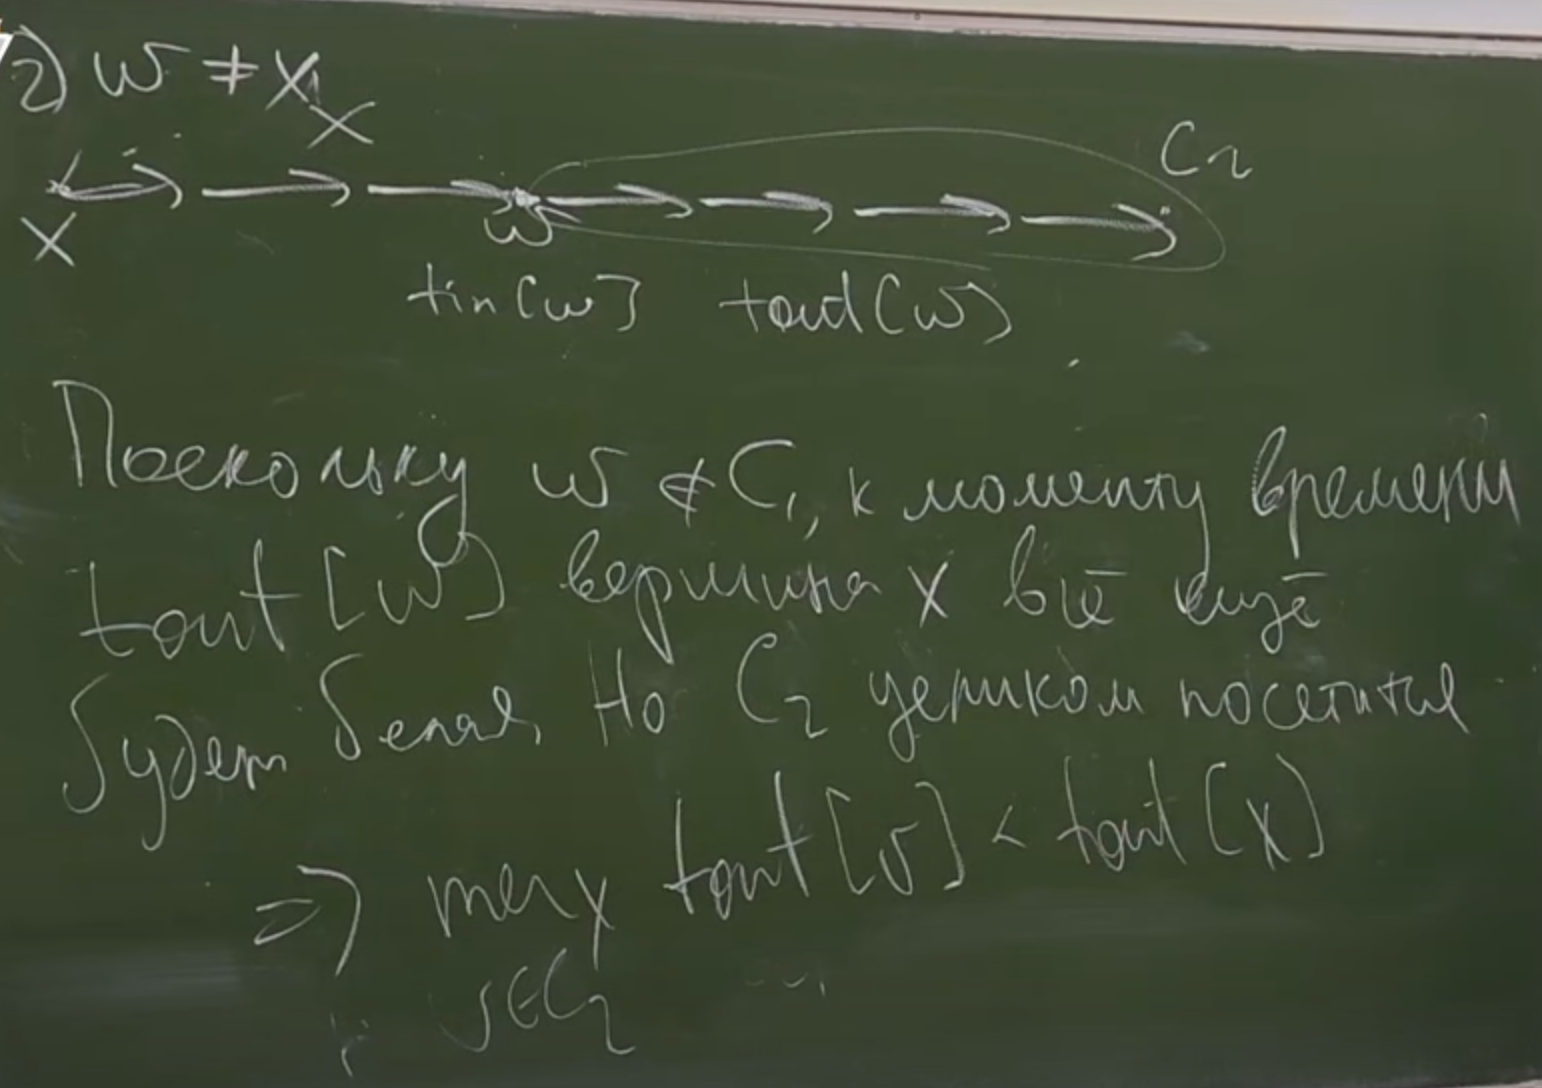 2) w ≠ x
x
C₂
x
w
tin[w] tout[w]
Поскольку w ∉ C₁, к моменту времени
tout[w] вершина x всё ещё
будет белая. Но C₂ целиком посетится
⇒ max tout[v] < tout[x]
v∈C₂